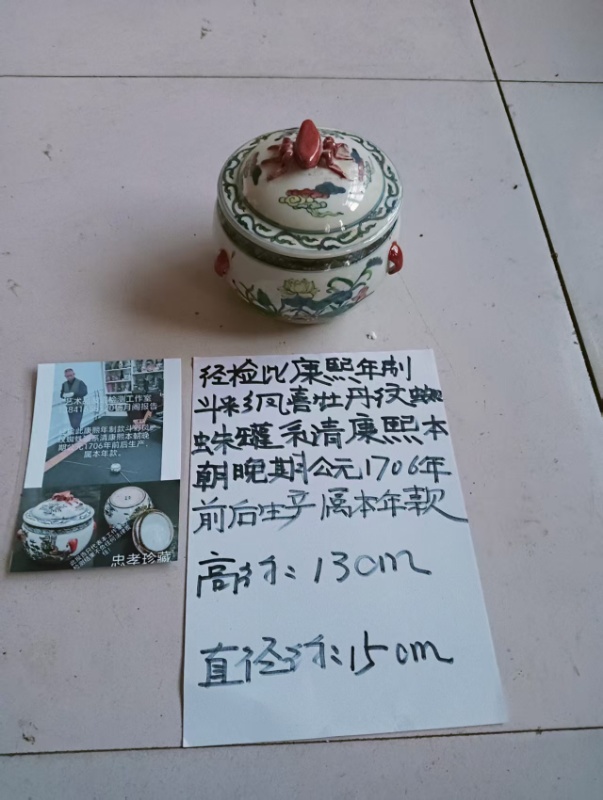 经检此康熙年制
斗彩凤喜牡丹纹蜘
蛛罐系清康熙本
朝晚期公元1706年
前后生产属本年款
高约:13cm
直径约:15cm
艺术品
检测工作室
月阁报告
此康熙年制款斗彩凤
系清康熙本朝晚
1706年前后生产,
属本年款。
忠孝珍藏